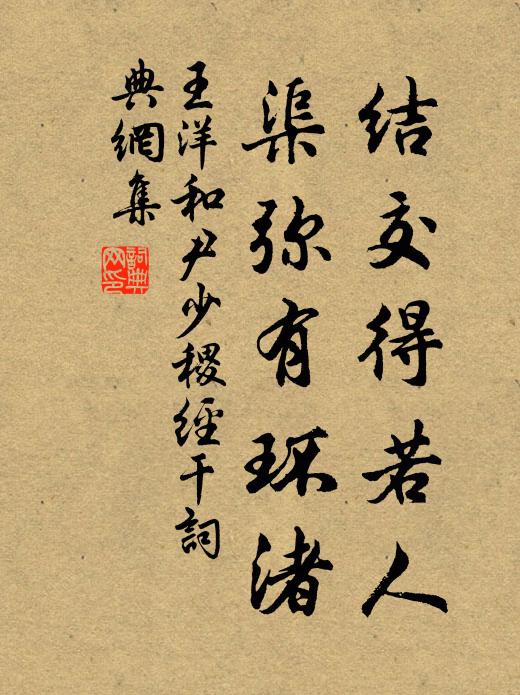 结交得若人
渠弥有环渚
王洋和尹少稷经干詞
典網集
詞典网印